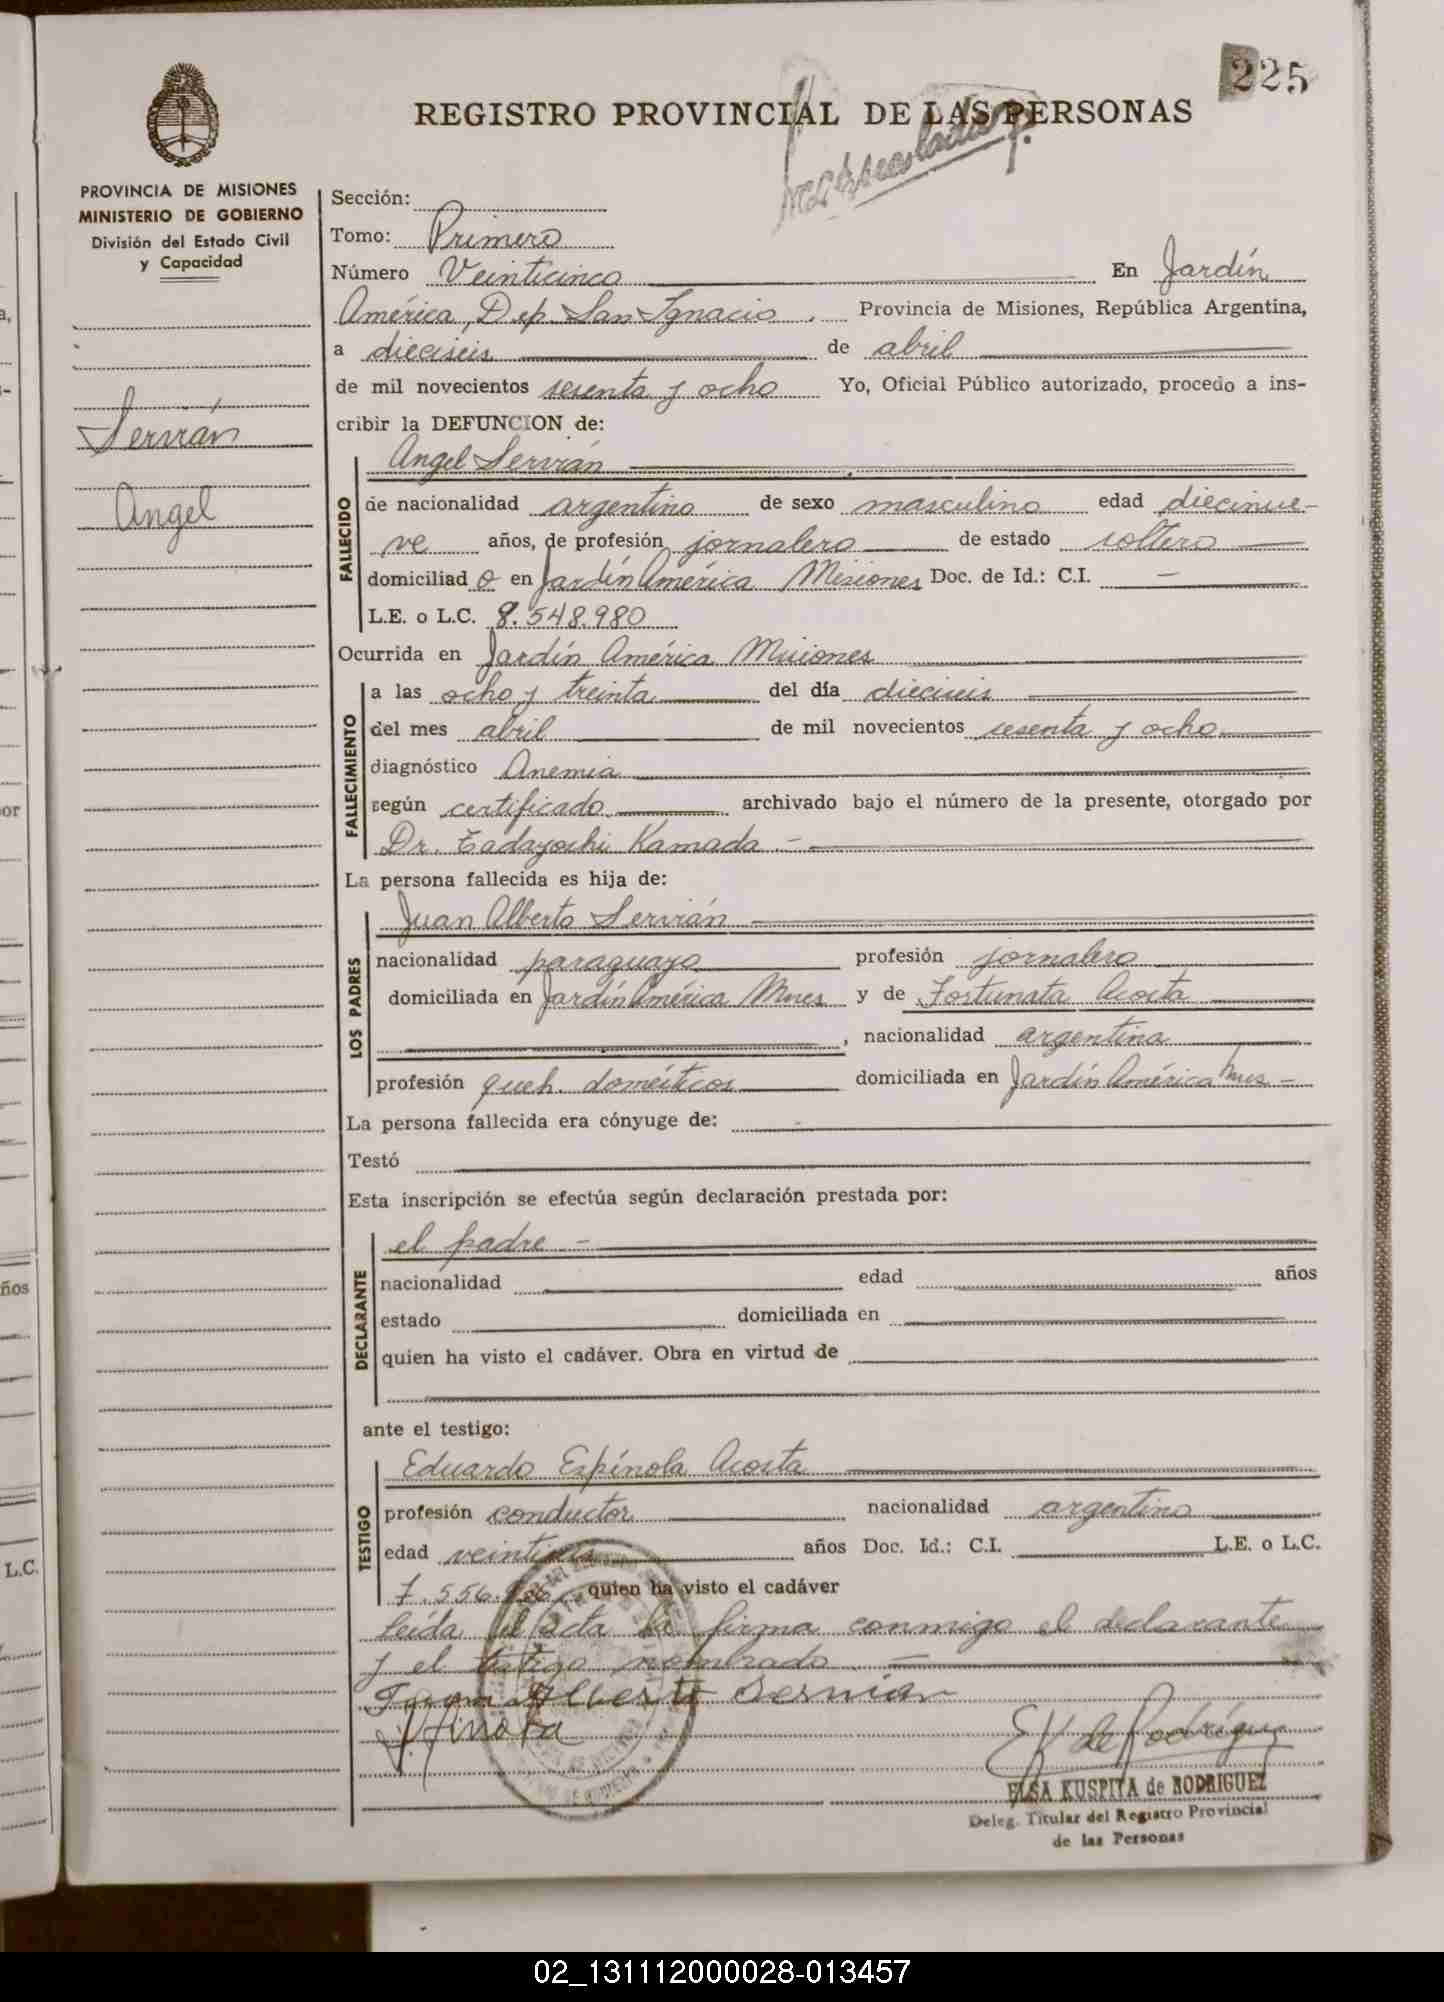 225
REGISTRO PROVINCIAL DE LAS PERSONAS
PROVINCIA DE MISIONES
MINISTERIO DE GOBIERNO
División del Estado Civil
y Capacidad
Servián
Angel
Sección:
Tomo: Primero
Número Veinticinco En Jardín
América, Dep. San Ignacio, Provincia de Misiones, República Argentina,
a dieciseis de abril
de mil novecientos sesenta y ocho Yo, Oficial Público autorizado, procedo a ins-
cribir la DEFUNCION de:
Angel Servián
FALLECIDO
de nacionalidad argentino de sexo masculino edad diecinue-
ve años, de profesión jornalero de estado soltero
domiciliad o en Jardín América Misiones Doc. de Id.: C.I. —
L.E. o L.C. 8.548.980
Ocurrida en Jardín América Misiones
FALLECIMIENTO
a las ocho y treinta del día dieciseis
del mes abril de mil novecientos sesenta y ocho
diagnóstico Anemia
según certificado archivado bajo el número de la presente, otorgado por
Dr. Tadayoshi Kamada —
La persona fallecida es hija de:
LOS PADRES
Juan Alberto Servián
nacionalidad paraguayo profesión jornalero
domiciliada en Jardín América Mnes y de Fortunata Acosta
, nacionalidad argentina
profesión queh. domésticos domiciliada en Jardín América Mnes —
La persona fallecida era cónyuge de:
Testó
Esta inscripción se efectúa según declaración prestada por:
DECLARANTE
el padre —
nacionalidad edad años
estado domiciliada en
quien ha visto el cadáver. Obra en virtud de
ante el testigo:
TESTIGO
Eduardo Espínola Acosta
profesión conductor nacionalidad argentino
edad años Doc. Id.: C.I. L.E. o L.C.
7.556. quien ha visto el cadáver
leída el acta la firma conmigo el declarante
y el testigo nombrado. —
Juan Alberto Servian
E K de Rodríguez
ELSA KUSPITA de RODRIGUEZ
Deleg. Titular del Registro Provincial
de las Personas
L.C.
02_131112000028-013457